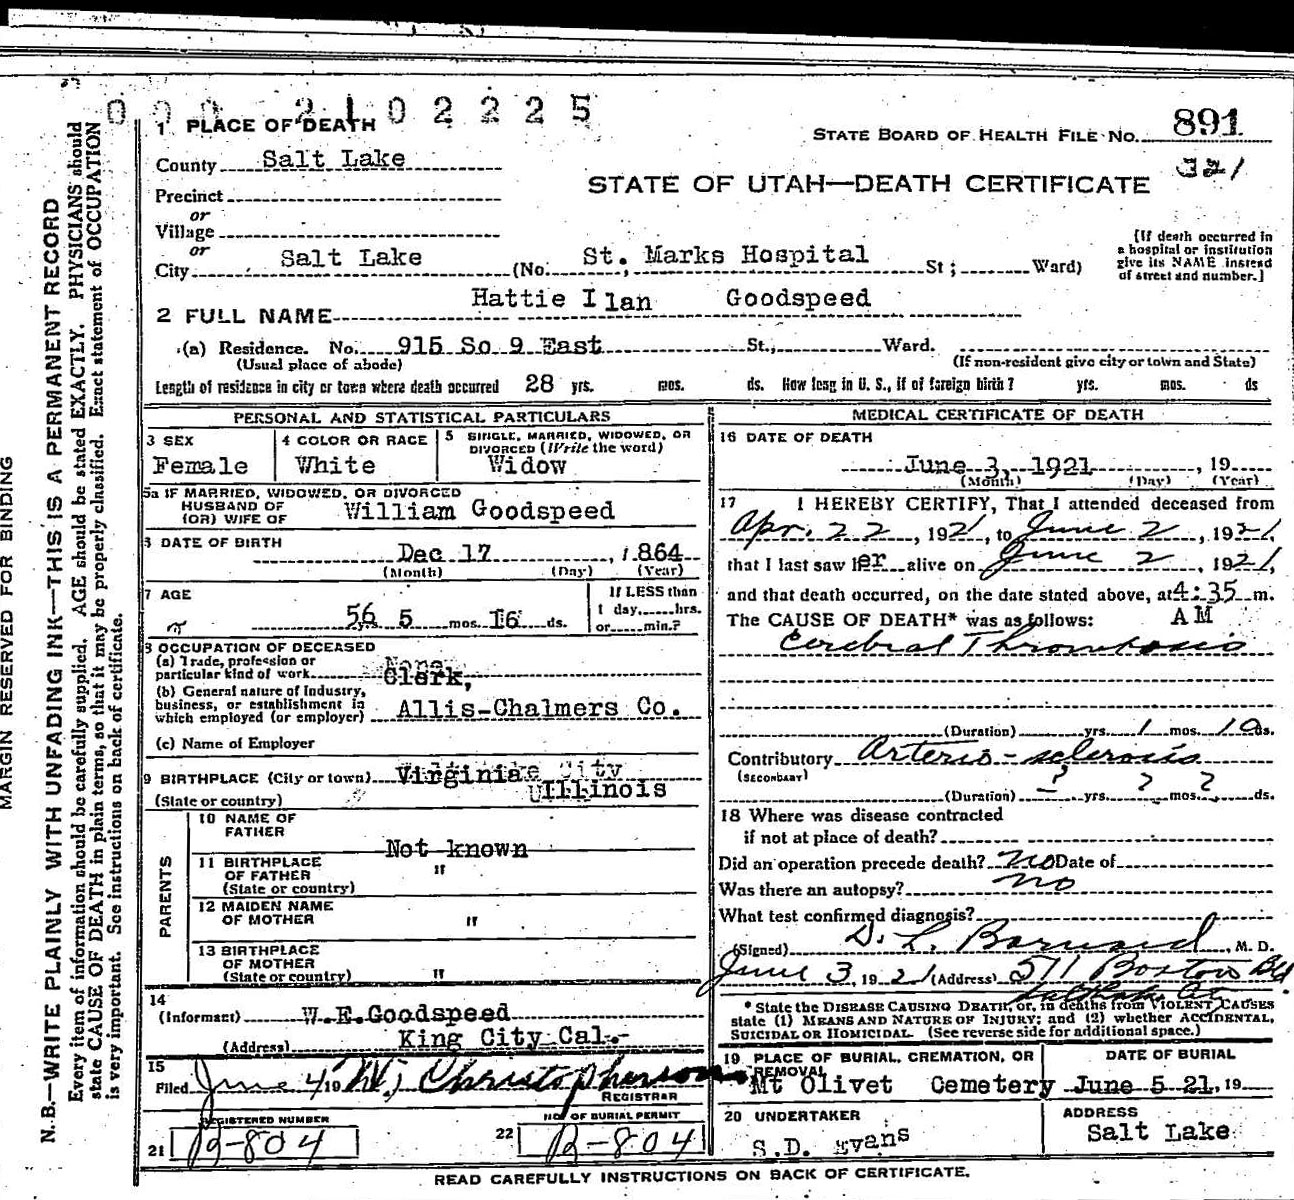 000 2102225
1 PLACE OF DEATH
STATE BOARD OF HEALTH FILE NO. 891
321
County Salt Lake
STATE OF UTAH—DEATH CERTIFICATE
Precinct
or
Village
or
City Salt Lake (No. St. Marks Hospital St; Ward)
[If death occurred in
a hospital or institution
give its NAME instead
of street and number.]
2 FULL NAME Hattie Ilan Goodspeed
(a) Residence. No. 915 So 9 East St., Ward.
(Usual place of abode)
(If non-resident give city or town and State)
Length of residence in city or town where death occurred 28 yrs. mos. ds. How long in U. S., if of foreign birth? yrs. mos. ds
PERSONAL AND STATISTICAL PARTICULARS
3 SEX
Female
4 COLOR OR RACE
White
5 SINGLE, MARRIED, WIDOWED, OR
DIVORCED (Write the word)
Widow
5a IF MARRIED, WIDOWED, OR DIVORCED
HUSBAND OF
(OR) WIFE OF William Goodspeed
6 DATE OF BIRTH
Dec 17, 1864
(Month) (Day) (Year)
7 AGE
56 yrs. 5 mos. 16 ds.
If LESS than
1 day, hrs.
or min.?
8 OCCUPATION OF DECEASED
(a) Trade, profession or
particular kind of work None
Clerk,
(b) General nature of Industry,
business, or establishment in
which employed (or employer) Allis-Chalmers Co.
(c) Name of Employer
9 BIRTHPLACE (City or town) Virginia City
(State or country) Illinois
PARENTS
10 NAME OF
FATHER
Not known
11 BIRTHPLACE
OF FATHER "
(State or country)
12 MAIDEN NAME
OF MOTHER "
13 BIRTHPLACE
OF MOTHER
(State or country) "
14
(Informant) W.E.Goodspeed
(Address) King City Cal.-
15
Filed June 4 19 Christopherson
REGISTRAR
REGISTERED NUMBER
21 B-804
NO. OF BURIAL PERMIT
22 B-804
MEDICAL CERTIFICATE OF DEATH
16 DATE OF DEATH
June 3, 1921, 19
(Month) (Day) (Year)
17 I HEREBY CERTIFY, That I attended deceased from
Apr. 22, 1921, to June 2, 1921,
that I last saw her alive on June 2, 1921,
and that death occurred, on the date stated above, at 4:35 m.
The CAUSE OF DEATH* was as follows: AM
Cerebral Thrombosis
(Duration) yrs. 1 mos. 10 ds.
Contributory Arterio-sclerosis
(SECONDARY)
(Duration) ? yrs. ? mos. ? ds.
18 Where was disease contracted
if not at place of death?
Did an operation precede death? no Date of
Was there an autopsy? no
What test confirmed diagnosis?
(Signed) D. L. Barnard, M. D.
June 3, 1921 (Address) 511 Boston Bld
* State the DISEASE CAUSING DEATH, or, in deaths from VIOLENT CAUSES
state (1) MEANS AND NATURE OF INJURY; and (2) whether ACCIDENTAL,
SUICIDAL OR HOMICIDAL. (See reverse side for additional space.)
19 PLACE OF BURIAL, CREMATION, OR
REMOVAL
Mt Olivet Cemetery
DATE OF BURIAL
June 5 21, 19
20 UNDERTAKER
S.D. Evans
ADDRESS
Salt Lake
READ CAREFULLY INSTRUCTIONS ON BACK OF CERTIFICATE.
MARGIN RESERVED FOR BINDING
N. B.—WRITE PLAINLY WITH UNFADING INK—THIS IS A PERMANENT RECORD
Every item of information should be carefully supplied. AGE should be stated EXACTLY. PHYSICIANS should
state CAUSE OF DEATH in plain terms, so that it may be properly classified. Exact statement of OCCUPATION
is very important. See instructions on back of certificate.